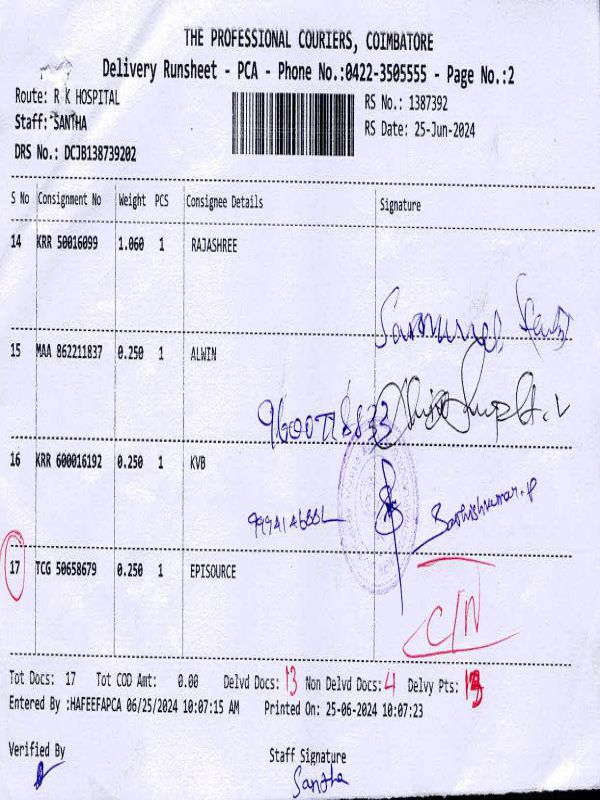 THE PROFESSIONAL COURIERS, COIMBATORE
Delivery Runsheet - PCA - Phone No.:0422-3505555 - Page No.:2
Route: R K HOSPITAL
RS No.: 1387392
Staff: SANTHA
RS Date: 25-Jun-2024
DRS No.: DCJB138739202
S No Consignment No Weight PCS Consignee Details Signature
14 KRR 50016099 1.060 1 RAJASHREE
15 MAA 862211837 0.250 1 ALWIN
16 KRR 600016192 0.250 1 KVB
Sathishkumar.P
17 TCG 50658679 0.250 1 EPISOURCE
C/N
Tot Docs: 17 Tot COD Amt: 0.00 Delvd Docs: 13 Non Delvd Docs: 4 Delvy Pts: 13
Entered By :HAFEEFAPCA 06/25/2024 10:07:15 AM Printed On: 25-06-2024 10:07:23
Verified By
Staff Signature
Santha